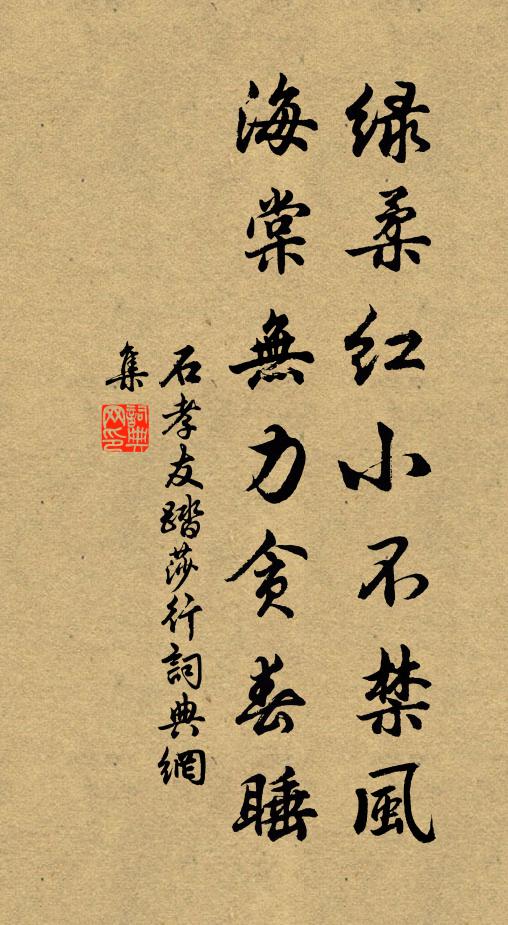 绿柔红小不禁風
海棠無力贪春睡
石孝友踏莎行詞典網
集
詞典
网印